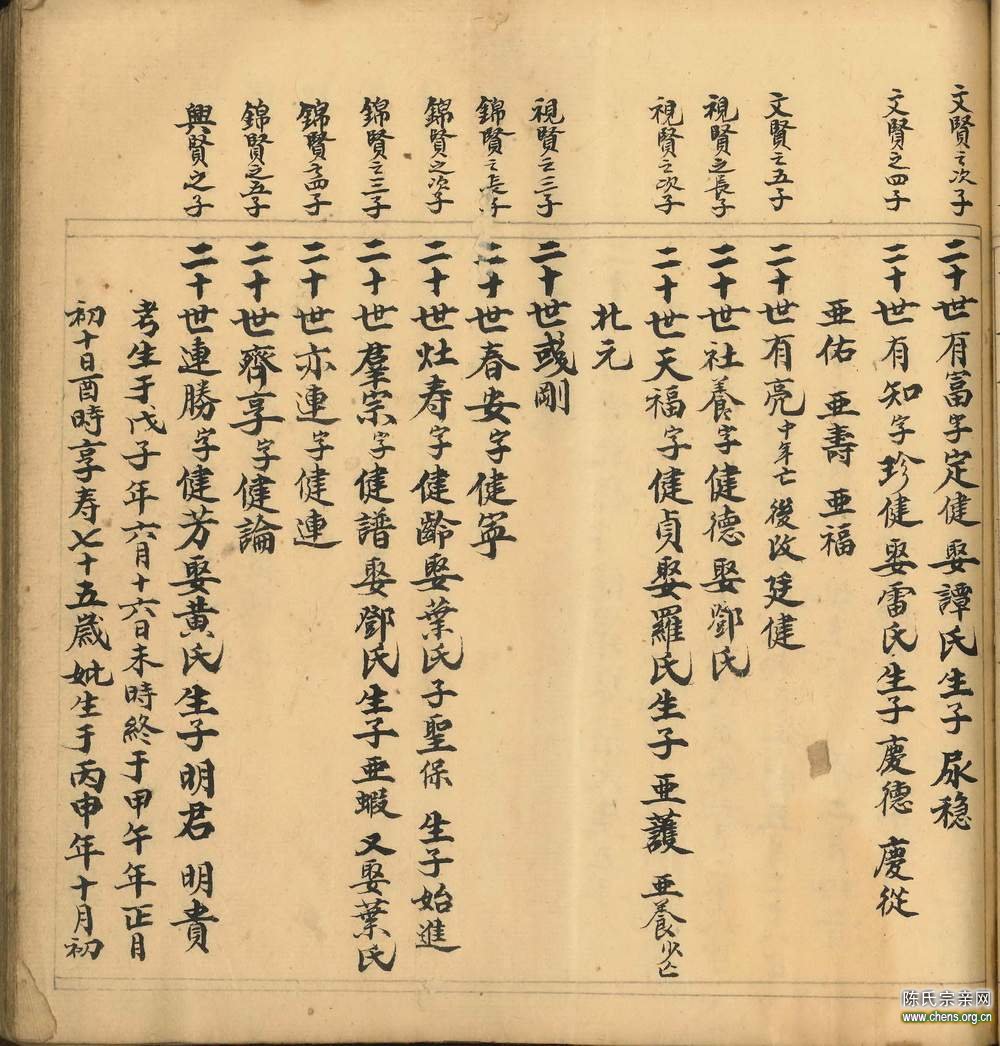 文賢之次子
二十世有富字定健娶譚氏生子尿穏
文賢之四子
二十世有知字珍健娶雷氏生子慶德 慶從
亜佑 亜壽 亜福
文賢之五子
二十世有亮中年亡後改廷健
視賢之長子
二十世社養字健德娶鄧氏
視賢之次子
二十世天福字健貞娶羅氏生子亜護 亜養少亡
北元
視賢之三子
二十世彧剛
錦賢之長子
二十世春安字健寧
錦賢之次子
二十世灶寿字健齡娶葉氏子聖保 生子始進
錦賢之三子
二十世羣宗字健譜娶鄧氏生子亜蝦又娶葉氏
錦賢之四子
二十世亦連字健連
錦賢之五子
二十世齊享字健論
興賢之子
二十世連勝字健芳娶黃氏生子明君 明貴
考生于戊子年六月十六日未時終于甲午年正月
初十日酉時享寿七十五歲妣生于丙申年十月初
陈氏宗亲网
www.chens.org.cn